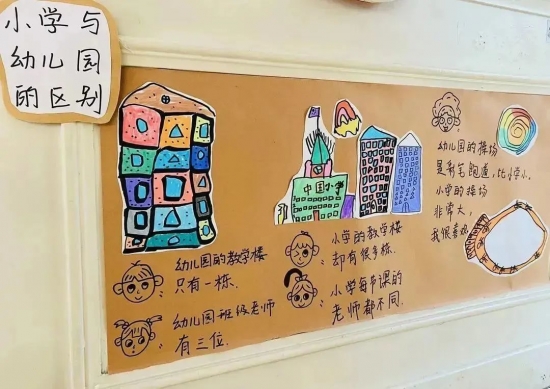 小学与
幼儿园
的区别
幼儿园的教学楼
只有一栋.
幼儿园班级老师
有三位.
中国小学
小学的教学楼
却有很多栋.
小学每节课的
老师都不同.
幼儿园的操场
是彩色跑道,比小学小,
小学的操场
非常大,
我很喜欢